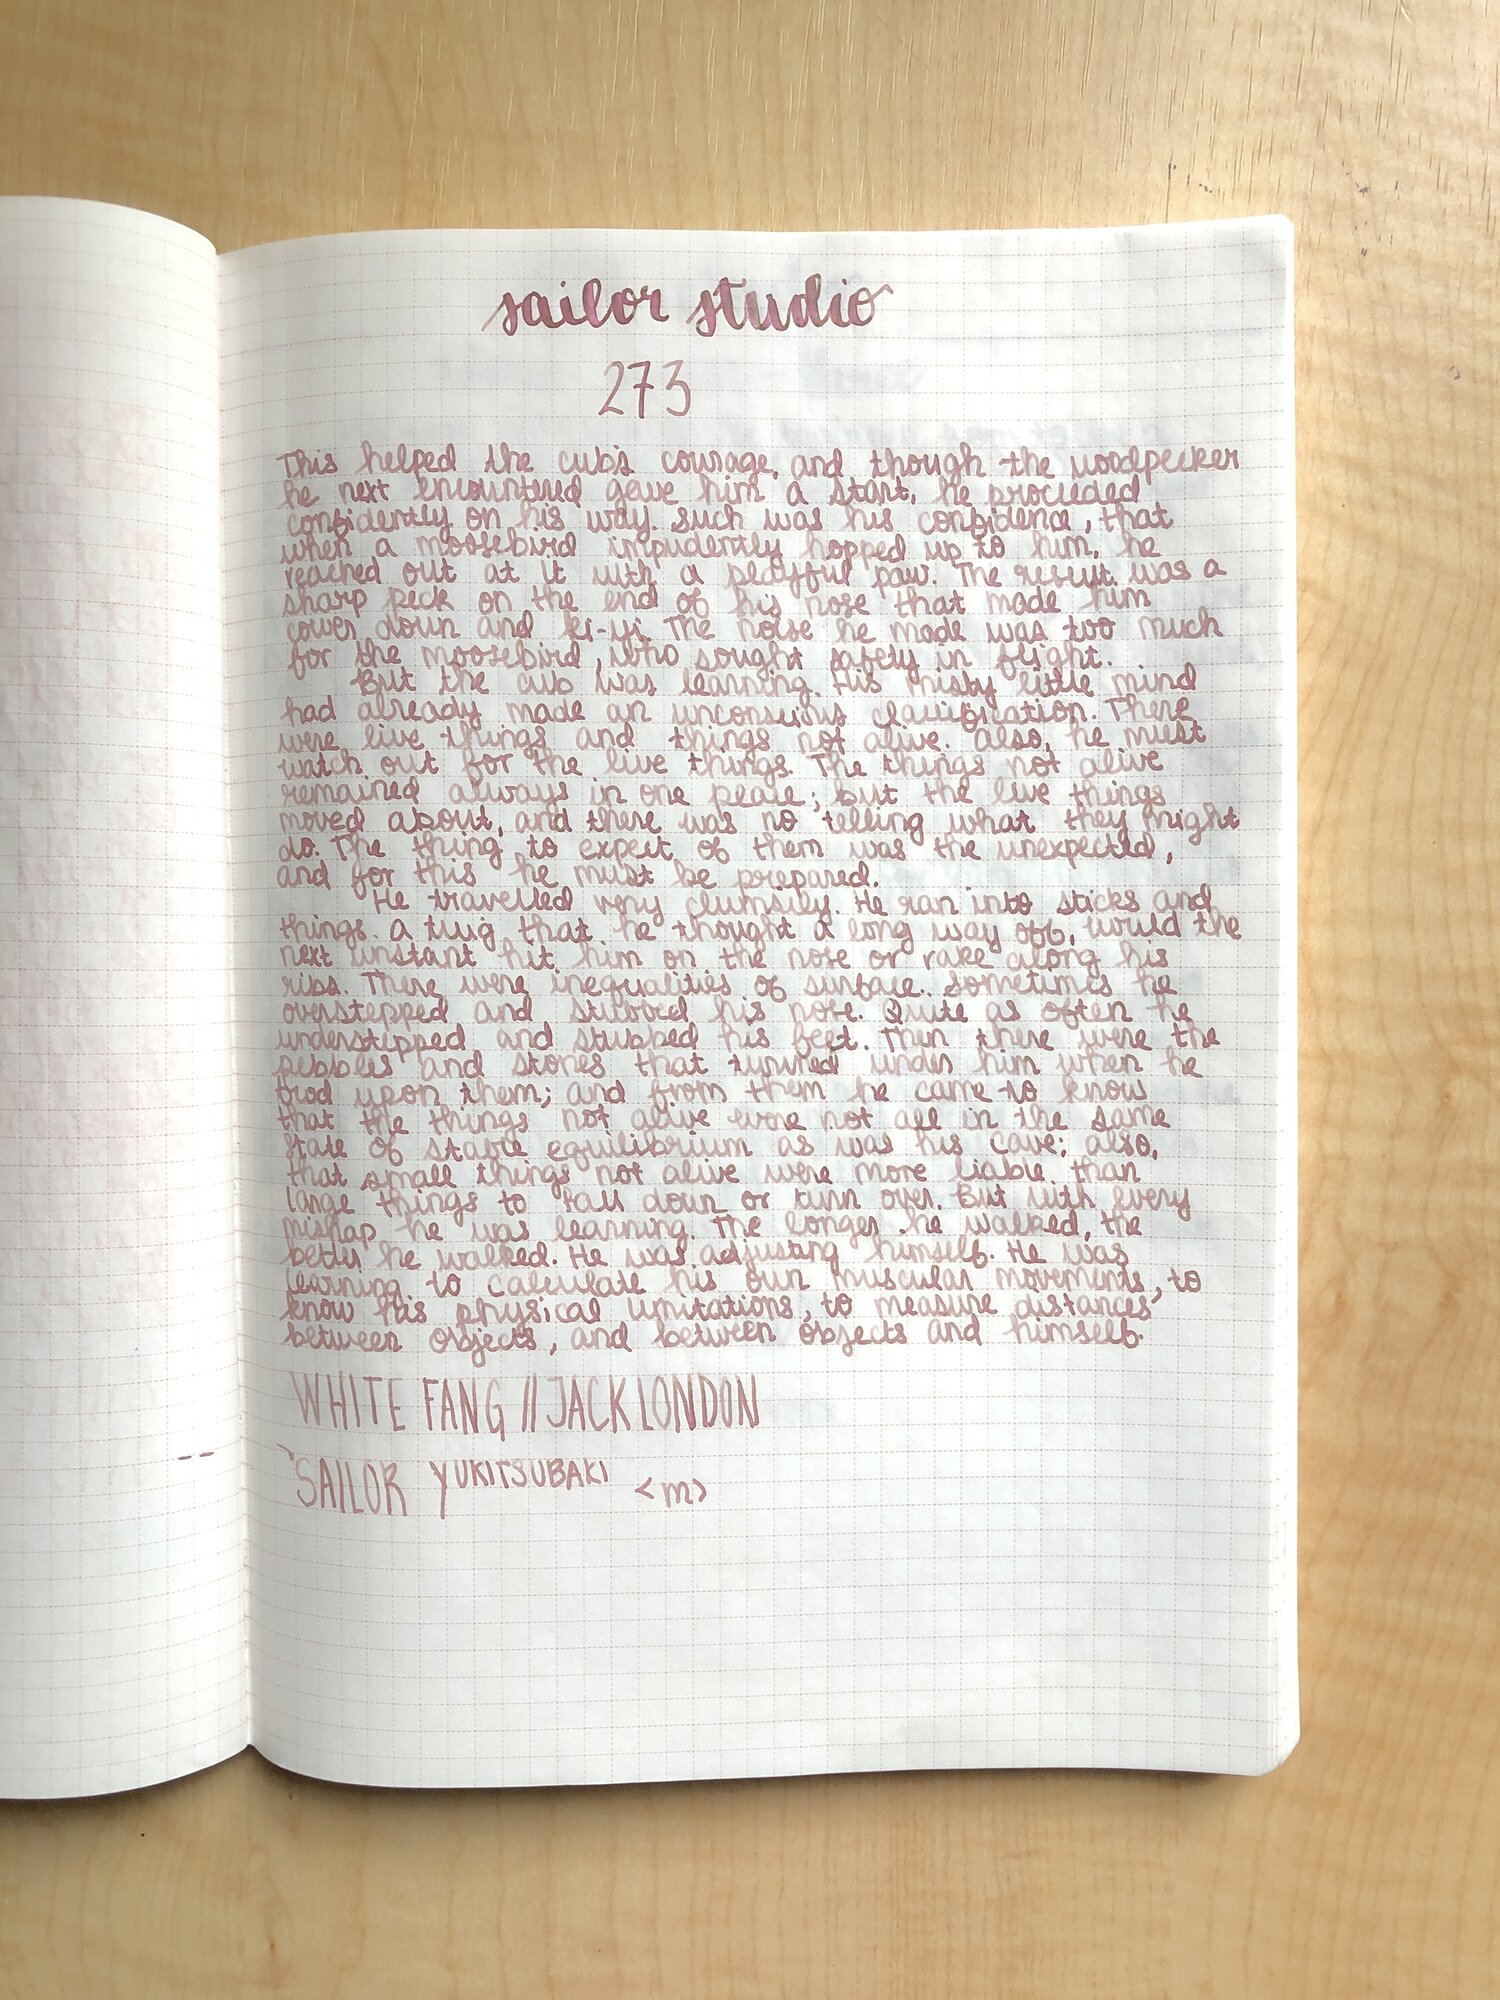 sailor studio
273
This helped the cub's courage, and though the woodpecker
he next encountered gave him a start, he proceeded
confidently on his way. Such was his confidence, that
when a moosebird impudently hopped up to him, he
reached out at it with a playful paw. The result was a
sharp peck on the end of his nose that made him
cower down and ki-yi. The noise he made was too much
for the moosebird, who sought safety in flight.
But the cub was learning. His misty little mind
had already made an unconscious classification. There
were live things and things not alive. Also, he must
watch out for the live things. The things not alive
remained always in one place; but the live things
moved about, and there was no telling what they might
do. The thing to expect of them was the unexpected,
and for this he must be prepared.
He travelled very clumsily. He ran into sticks and
things. A twig that he thought a long way off, would the
next instant hit him on the nose or rake along his
ribs. There were inequalities of surface. Sometimes he
overstepped and stubbed his nose. Quite as often he
understepped and stubbed his feet. Then there were the
pebbles and stones that turned under him when he
trod upon them; and from them he came to know
that the things not alive were not all in the same
state of stable equilibrium as was his cave; also,
that small things not alive were more liable than
large things to fall down or turn over. But with every
mishap he was learning. The longer he walked, the
better he walked. He was adjusting himself. He was
learning to calculate his own muscular movements, to
know his physical limitations, to measure distances
between objects, and between objects and himself.
WHITE FANG // JACK LONDON
SAILOR YUKITSUBAKI <m>